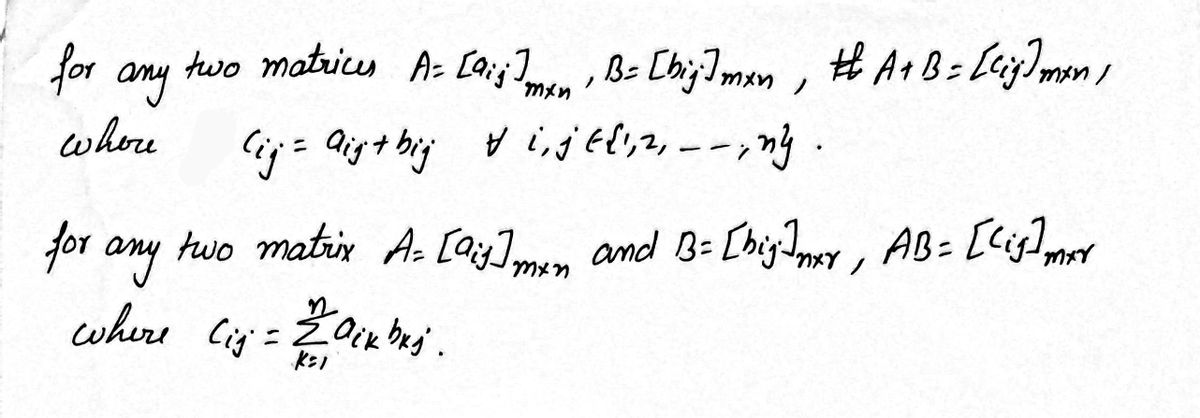 for any two matrices A = [aij]m×n , B = [bij]m×n , A + B = [cij]m×n ,
where cij = aij + bij ∀ i, j ∈ {1, 2, - - , n} .
for any two matrix A = [aij]m×n and B = [bij]n×r , AB = [cij]m×r
where cij = ∑_{k=1}^{n} aik bkj .